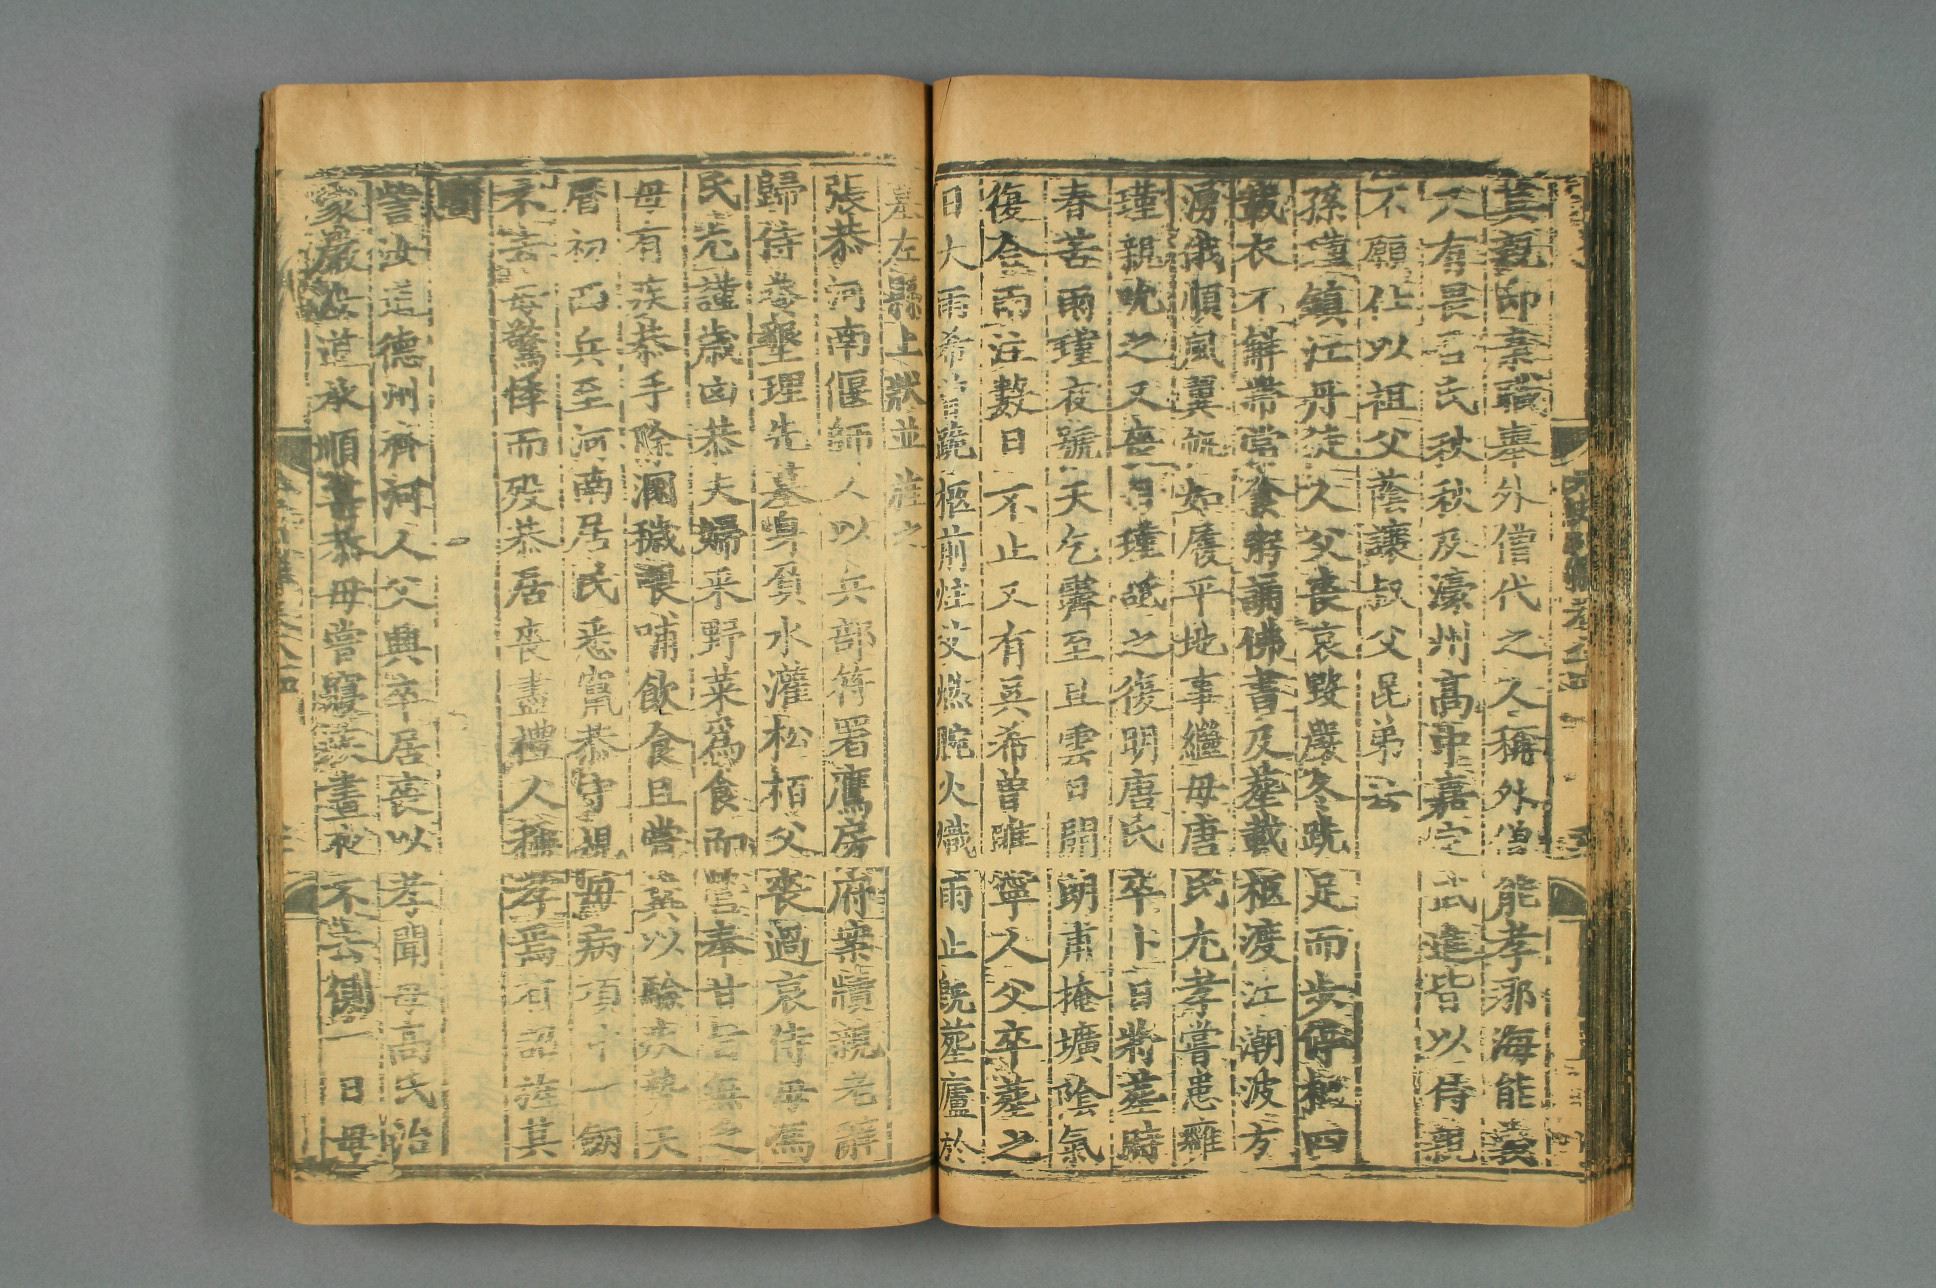 其親即棄職奉外僧代之人稱外僧能孝那海能義
又有畏吾氏秋秋及濠州高中嘉定武進皆以侍親
不願仕以祖父蔭讓叔父昆弟云
孫瑾鎮江丹徒人父喪哀毀嚴冬跣足而步停柩四
載衣不解帶常食粥誦佛書及塟載柩渡江潮波方
湧俄順風翼帆如履平地事繼母唐氏尤孝嘗患癰
瑾親吮之又喪目瑾䑛之復明唐氏卒卜日將塟時
春苦雨瑾夜號天乞霽至旦雲日開朗甫掩壙陰氣
復合雨注數日不止又有吳希曾睢寧人父卒塟之
日大雨希曾跪柩前炷艾燃腕火熾雨止旣塟廬於
墓左縣上狀並旌之
張恭河南偃師人以兵部符署鷹房府案牘親老辭
歸侍養墾理先墓身負水灌松栢父喪過哀侍母馮
氏尤謹歲凶恭夫婦采野菜爲食而營奉甘旨無乏
母有疾恭手除溷穢喂哺飲食且嘗糞以驗疾勢天
曆初西兵至河南居民悉竄恭守視母病項中一劍
不去母驚悸而歿恭居喪盡禮人稱孝焉有詔旌其
閭
訾汝道德州齊河人父興卒居喪以孝聞母高氏治
家嚴汝道承順甚恭母嘗寢疾晝夜不去側一日母
元史列傳卷八十四